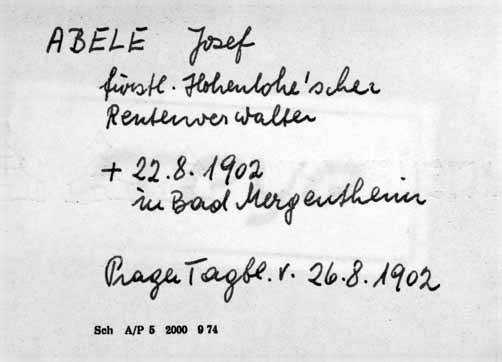 ABELE Josef
fürstl. Hohenlohe'scher
Rentenverwalter
+ 22.8.1902
in Bad Mergentheim
Prager Tagbl. v. 26.8.1902
Sch A/P 5 2000 9 74